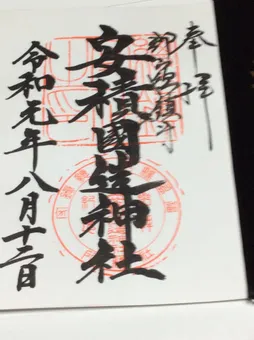 奉拝
郡山総鎮守
安積國造神社
令和元年八月十二日